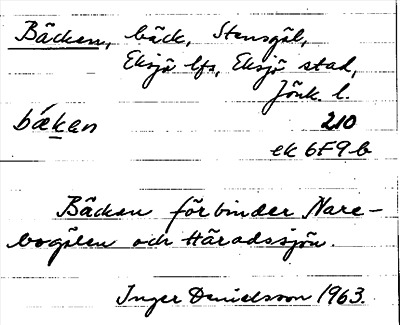 Bäcken, bäck, Stensgöl,
Eksjö lfs, Eksjö stad,
Jönk. l.
bǽkan 210
ek 6F9b
Bäcken förbinder Nare-
bogölen och Häradssjön.
Inger Danielsson 1963.